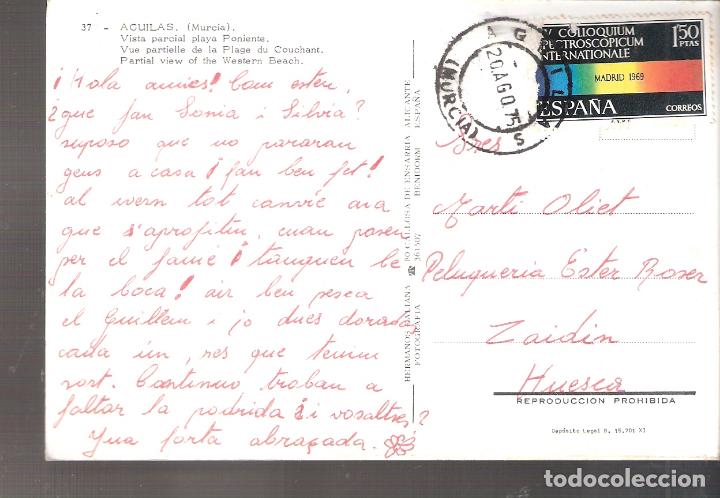 37 - AGUILAS. (Murcia).
Vista parcial playa Poniente.
Vue partielle de la Plage du Couchant.
Partial view of the Western Beach.
¡Hola amics! Com esteu,
¿que fan Sonia i Silvia?
suposo que no pararan
gens a casa ¡fan ben fet!
al ivern tot canvie ara
que s'aprofitin, cuan posen
per el james ¡tanquen be
la boca! air ben pesca
el Guillem i jo dues dorada
cada un, res que tenim
sort. Continuo troban a
faltar la podrida ¿i vosaltres?
Una forta abraçada.
HERMANOS GALIANA ☎ 80 CALLOSA DE ENSARRIA ALICANTE
FOTOGRAFIA 361507 BENIDORM ESPAÑA
AGUILAS
20 AGO. 75
(MURCIA)
COLLOQUIUM
SPECTROSCOPICUM
INTERNATIONALE
1'50
PTAS
MADRID 1969
ESPAÑA
CORREOS
Sres
Martí Oliet
Peluqueria Ester Roser
Zaidin
Huesca
REPRODUCCION PROHIBIDA
Depósito Legal B. 15.701 XI
todocoleccion.net